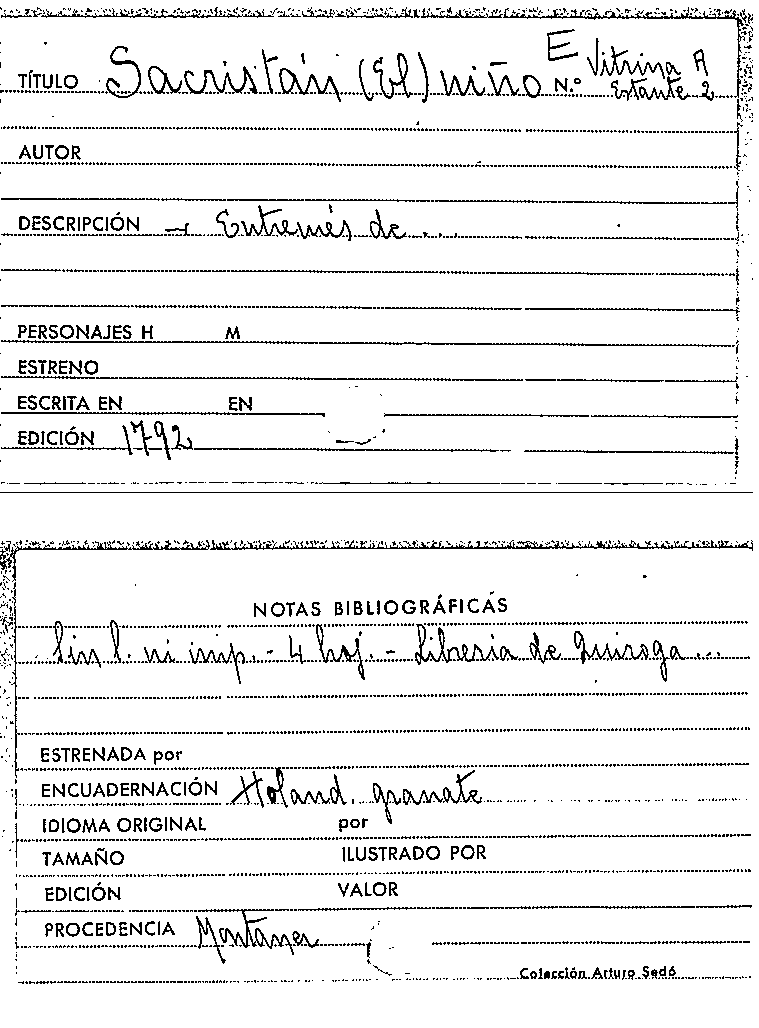 E Vitrina A
TÍTULO Sacristán (El) niño N.º Estante 2
AUTOR
DESCRIPCIÓN → Entremés de ...
PERSONAJES H M
ESTRENO
ESCRITA EN EN
EDICIÓN 1792
NOTAS BIBLIOGRÁFICAS
Sin l. ni imp. - 4 hoj. - Libreria de Quiroga ...
ESTRENADA por
ENCUADERNACIÓN Holand. granate
IDIOMA ORIGINAL por
TAMAÑO ILUSTRADO POR
EDICIÓN VALOR
PROCEDENCIA Montaner
Colección Arturo Sedó